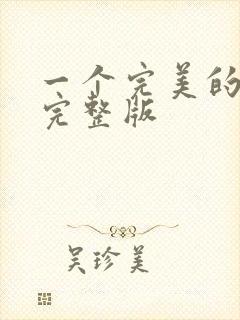 一个完美的
完整版
吴珍美